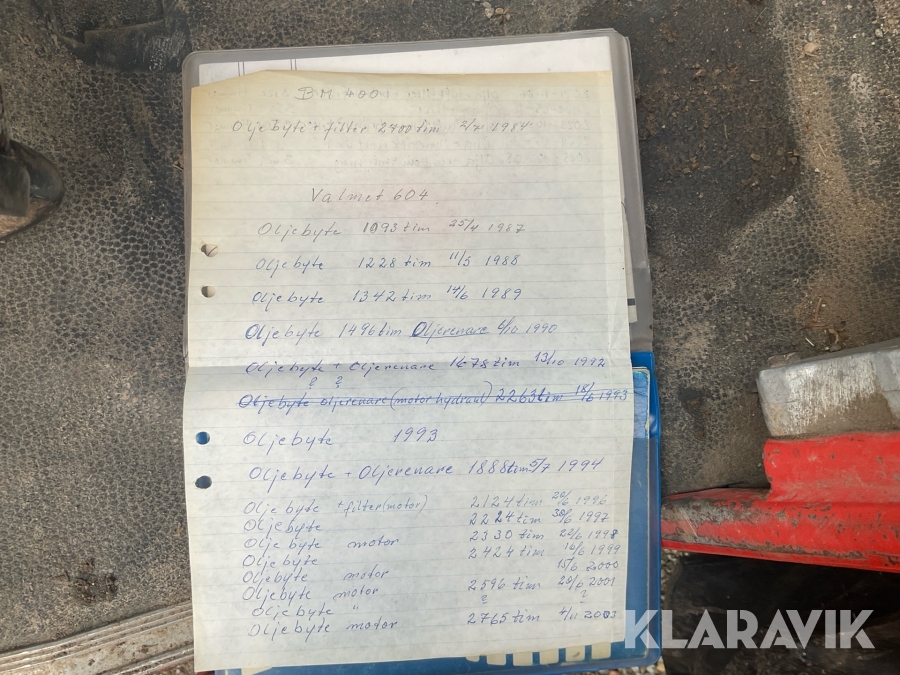 BM 400
Oljebyte + filter 2900 tim 2/7 1984
Valmet 604
Oljebyte 1093 tim 25/4 1987
Oljebyte 1228 tim 11/5 1988
Oljebyte 1342 tim 14/6 1989
Oljebyte 1496 tim Oljerenare 6/10 1990
Oljebyte + Oljerenare 1678 tim 13/10 1992
? ?
Oljebyte oljerenare (motor hydraul) 2263 tim 18/6 1993
Oljebyte 1993
Oljebyte + Oljerenare 1888 tim 5/7 1994
Oljebyte + filter (motor) 2124 tim 20/6 1996
Oljebyte 2224 tim 30/6 1997
Oljebyte motor 2330 tim 22/6 1998
Oljebyte 2424 tim 16/6 1999
Oljebyte motor 15/6 2000
Oljebyte motor 2596 tim 2001
Oljebyte " ? ?
Oljebyte motor 2765 tim 4/11 2003
KLARAVIK